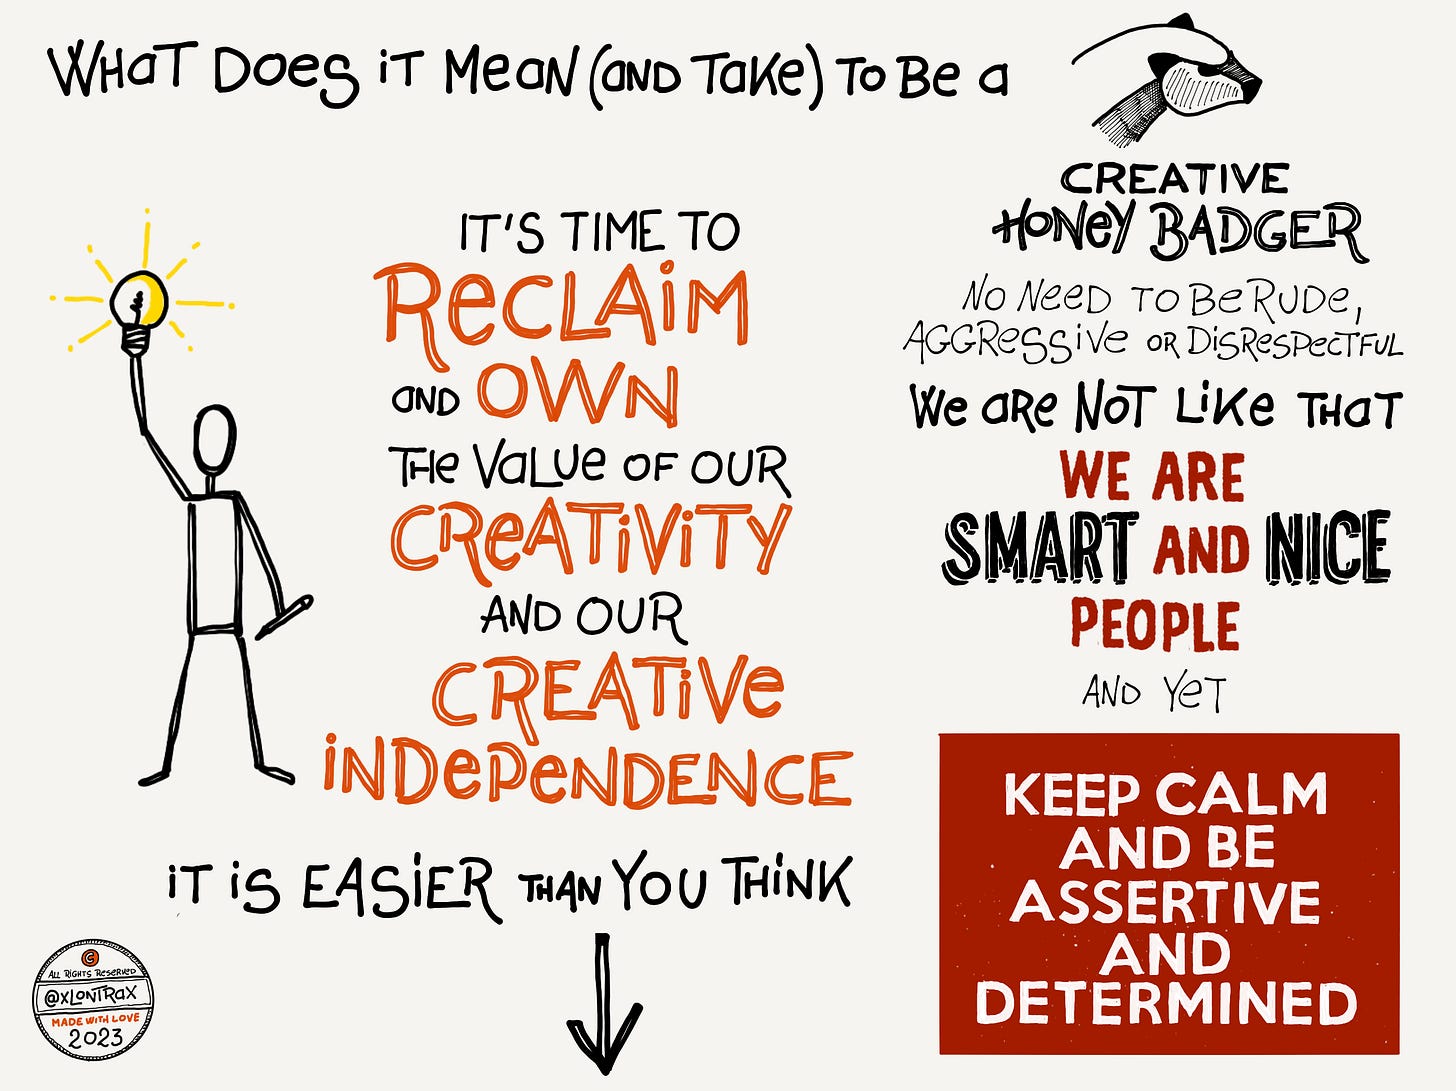 WHaT Does iT Mean (and Take) To Be a
CREATIVE
HoNey BADGER
IT'S TIME TO
ReCLAiM
and OWN
THe VaLue OF OUR
CReATiViTY
AND OUR
CREATiVe
iNDePeNDENCE
iT iS EASiER THAN YOU THiNK
No NeeD To Be RuDe,
AGGReSSiVe OR DiSResPecTFUL
We aRe NoT LiKe THaT
WE ARE
SMART AND NICE
PEOPLE
AND YeT
KEEP CALM
AND BE
ASSERTIVE
AND
DETERMINED
C
ALL RiGHTS ReSeRVeD
@xLONTRaX
MADE WiTH LOVE
2023